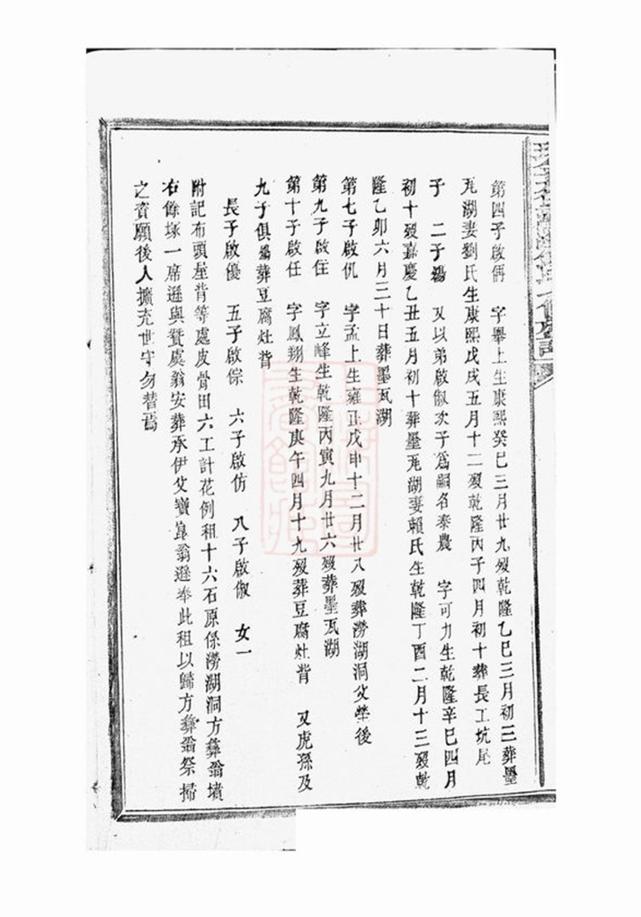 第四子啟偁 字舉上生康熙癸巳三月廿九歿乾隆乙巳三月初三葬墨
瓦湖妻劉氏生康熙戊戌五月十二歿乾隆丙子四月初十葬長工坑尾
子 二子殤 又以弟啟俶次子爲嗣名泰農 字可力生乾隆辛巳四月
初十歿嘉慶乙丑五月初十葬墨瓦湖妻賴氏生乾隆丁酉二月十三歿乾
隆乙卯六月三十日葬墨瓦湖
第七子啟仉 字孟上生雍正戊申十二月廿八歿葬澇湖洞父塋後
第九子啟住 字立峰生乾隆丙寅九月廿六歿葬墨瓦湖
第十子啟任 字鳳翔生乾隆庚午四月十九歿葬豆腐灶背 又虎孫及
九子俱墨葬豆腐灶背
長子啟優 五子啟倧 六子啟仿 八子啟俶 女一
附記布頭屋背等處皮骨田六工計花例租十六石原係澇湖洞方彝翁墳
右餘塚一席遜與贊虞翁安葬承伊父寶崑翁遜奉此租以歸方彝翁祭掃
之資願後人擴充世守勿替焉